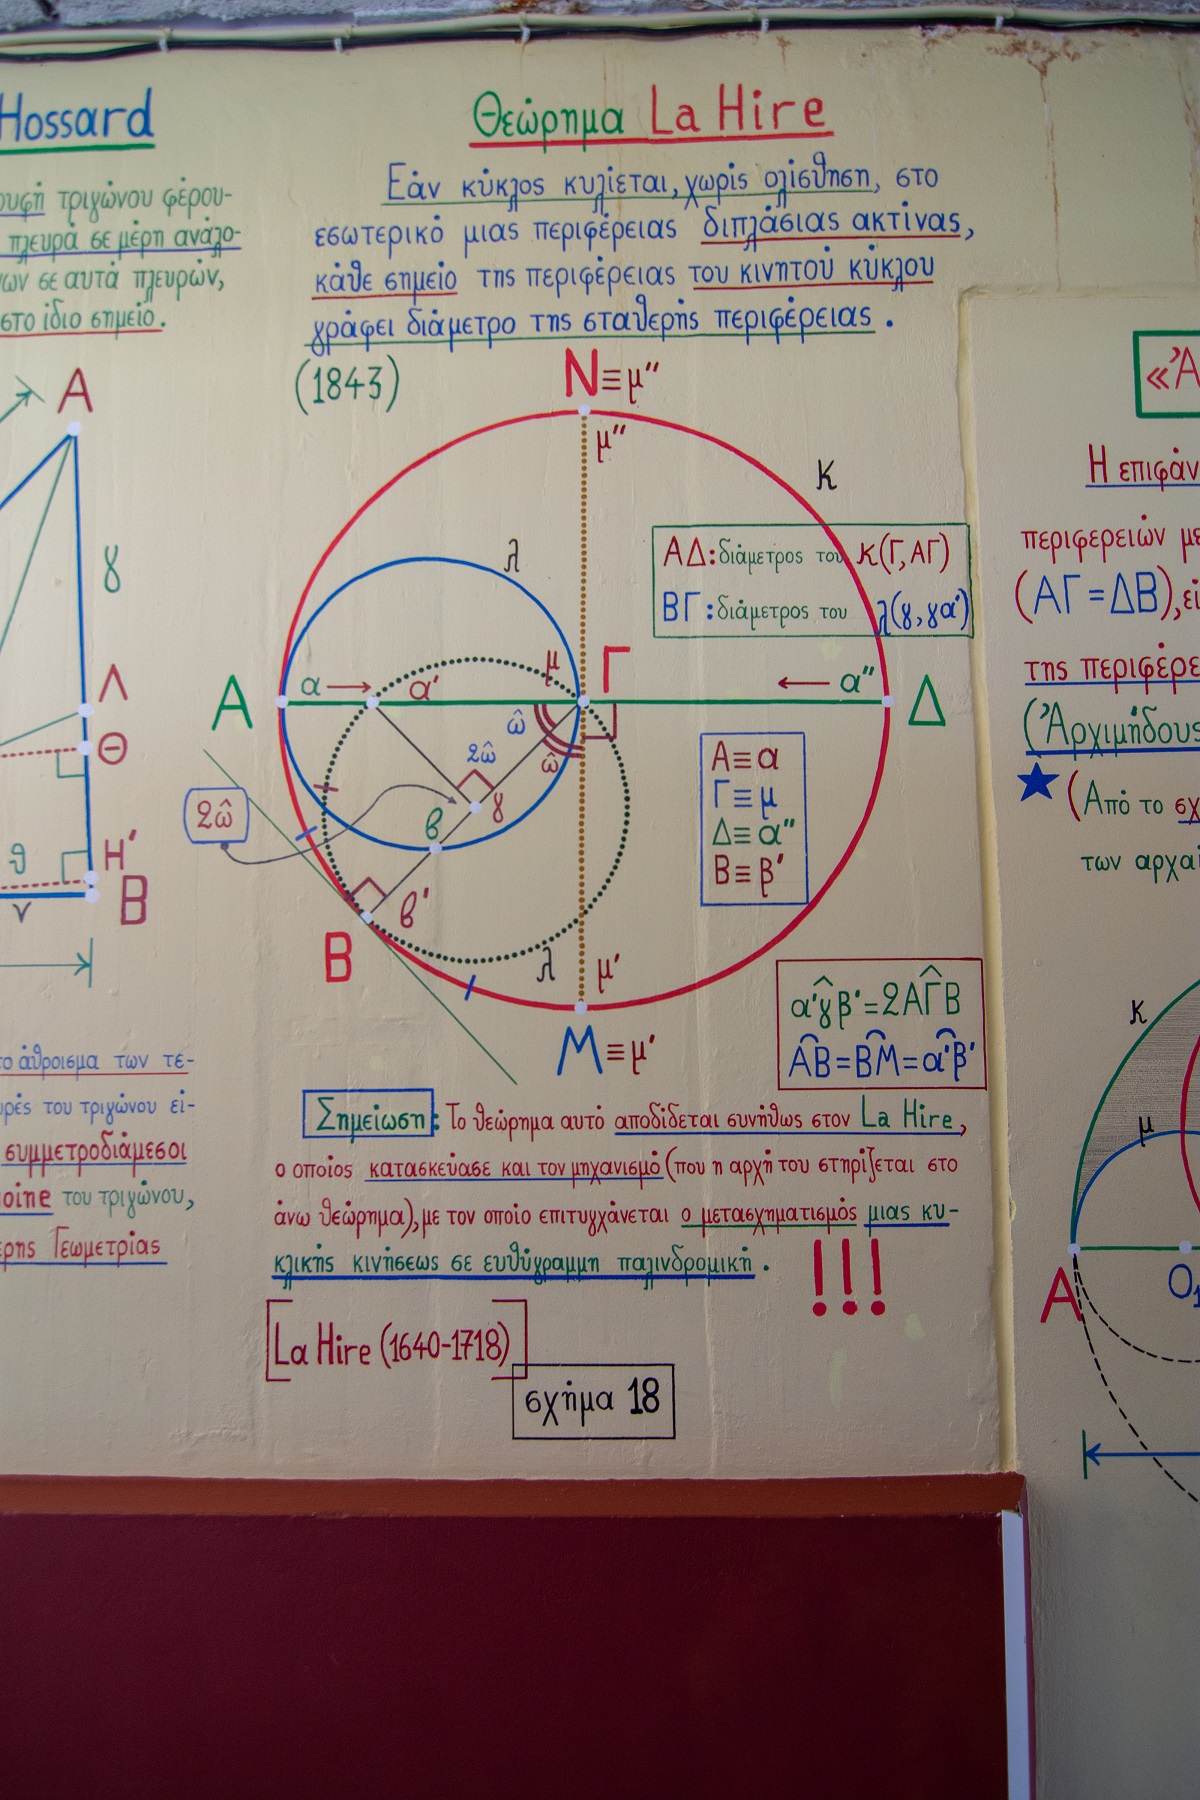 Hossard
τριγώνου φέρου-
πλευρά σε μέρη ανάλο-
σε αυτά πλευρών,
στο ίδιο σημείο.
Α
γ
Λ
Θ
Η'
Β
θ
ν
άθροισμα των τε-
του τριγώνου εί-
συμμετροδιάμεσοι
του τριγώνου,
Γεωμετρίας
Θεώρημα La Hire
Εάν κύκλος κυλίεται, χωρίς ολίσθηση, στο
εσωτερικό μιας περιφέρειας διπλάσιας ακτίνας,
κάθε σημείο της περιφέρειας του κινητού κύκλου
γράφει διάμετρο της σταθερής περιφέρειας.
(1843)
Ν≡μ''
μ''
κ
λ
ΑΔ: διάμετρος του κ(Γ,ΑΓ)
ΒΓ: διάμετρος του λ(γ,γα')
Α
α
α'
μ
Γ
α''
Δ
ω̂
2ω̂
ω̂
2ω̂
γ
β
β'
Β
λ
μ'
Μ≡μ'
Α≡α
Γ≡μ
Δ≡α''
Β≡β'
α'γ̂β'=2ΑΓ̂Β
Α͡Β=Β͡Μ=α'͡β'
Σημείωση: Το θεώρημα αυτό αποδίδεται συνήθως στον La Hire,
ο οποίος κατασκεύασε και τον μηχανισμό (που η αρχή του στηρίζεται στο
άνω θεώρημα), με τον οποίο επιτυγχάνεται ο μετασχηματισμός μιας κυ-
κλικής κινήσεως σε ευθύγραμμη παλινδρομική. !!!
[La Hire (1640-1718)]
σχήμα 18
«Ἀ
Η επιφάν
περιφερειών με
(ΑΓ=ΔΒ), εί
της περιφέρε
(Ἀρχιμήδους
(Από το σχ
των αρχαί
κ
μ
Α
Ο₁